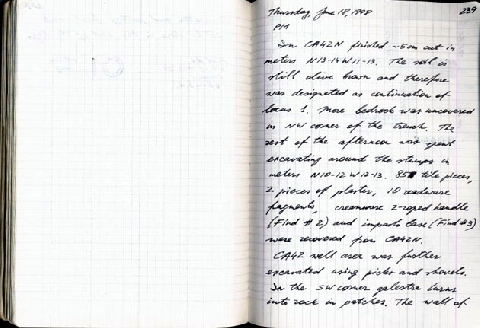 Thursday, June 18, 1998 239
PM
In CA42N finished ~5cm cut in
meters N13-14 W11-13. The soil is
still olive brown and therefore
was designated as continuation of
locus 1. More bedrock was uncovered
in NW corner of the trench. The
rest of the afternoon was spent
excavating around the stumps in
meters N10-12 W12-13. 85 tile pieces,
2 pieces of plaster, 10
fragments, creamware 2-roped handle
(Find # 2) and impasto base (Find #3)
were recovered from CA42N.
CA42 well area was further
excavated using picks and shovels.
In the SW corner galestra turns
into rock in patches. The wall of